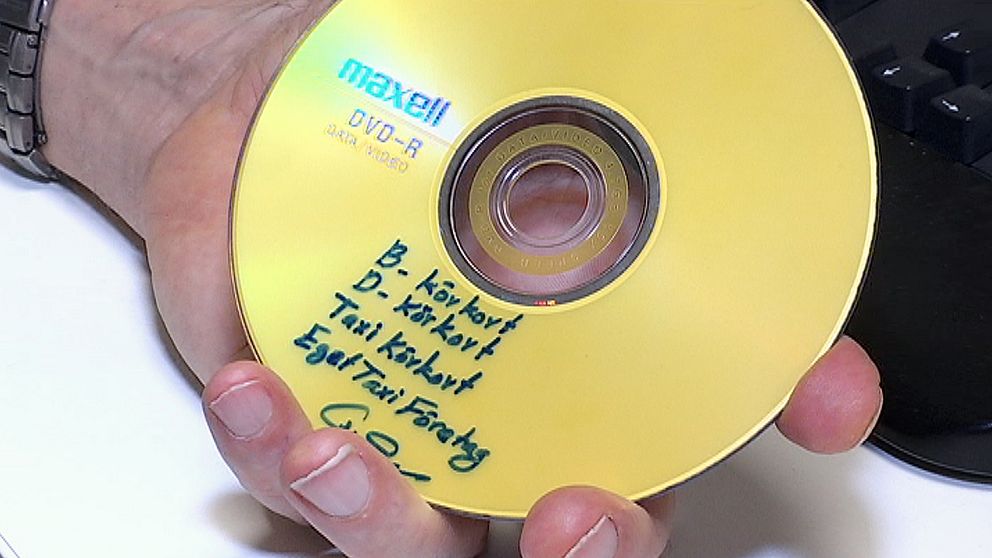 maxell
DVD-R
DATA/VIDEO
B-körkort
D-körkort
Taxi Körkort
Eget Taxi Företag